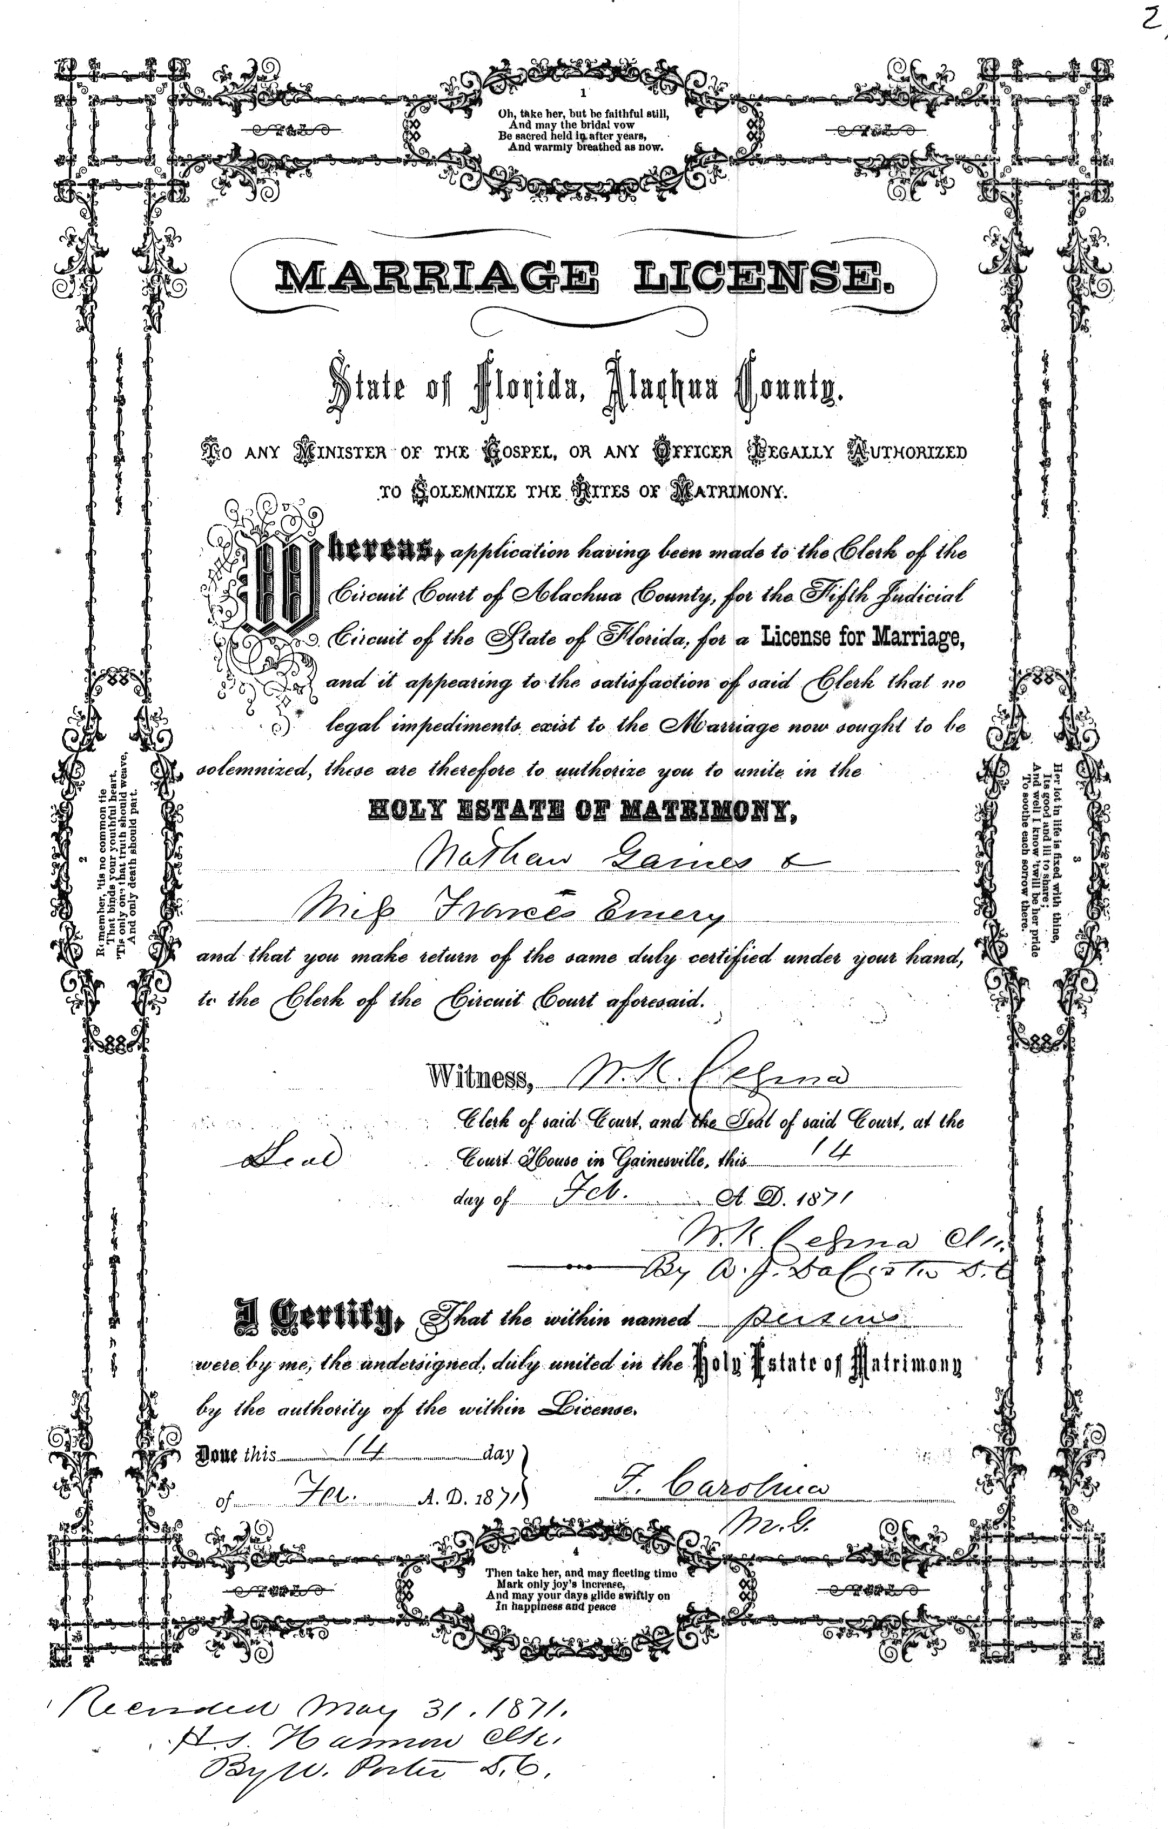 2,
1
Oh, take her, but be faithful still,
And may the bridal vow
Be sacred held in after years,
And warmly breathed as now.
MARRIAGE LICENSE.
State of Florida, Alachua County.
To any Minister of the Gospel, or any Officer Legally Authorized
to Solemnize the Rites of Matrimony.
Whereas, application having been made to the Clerk of the
Circuit Court of Alachua County, for the Fifth Judicial
Circuit of the State of Florida, for a License for Marriage,
and it appearing to the satisfaction of said Clerk that no
legal impediments exist to the Marriage now sought to be
solemnized, these are therefore to authorize you to unite in the
HOLY ESTATE OF MATRIMONY,
Nathan Gaines &
Miss Frances Emery
and that you make return of the same duly certified under your hand,
to the Clerk of the Circuit Court aforesaid.
Witness, W. K. Cessna
Clerk of said Court, and the Seal of said Court, at the
Seal
Court House in Gainesville, this 14
day of Feb. A. D. 1871
W. K. Cessna Clk.
By A. J. D.C
I Certify, That the within named persons
were by me, the undersigned, duly united in the Holy Estate of Matrimony
by the authority of the within License.
Done this 14 day
of Feb. A. D. 1871
F. Carolina
M.G.
2
Remember, 'tis no common tie
That binds your youthful heart,
'Tis only one that truth should weave,
And only death should part.
3
Her lot in life is fixed with thine,
Its good and ill to share;
And well I know 'twill be her pride
To soothe each sorrow there.
4
Then take her, and may fleeting time
Mark only joy's increase,
And may your days glide swiftly on
In happiness and peace
Recorded May 31. 1871.
H. S. Harmon Clk.
By W. Porter D.C.